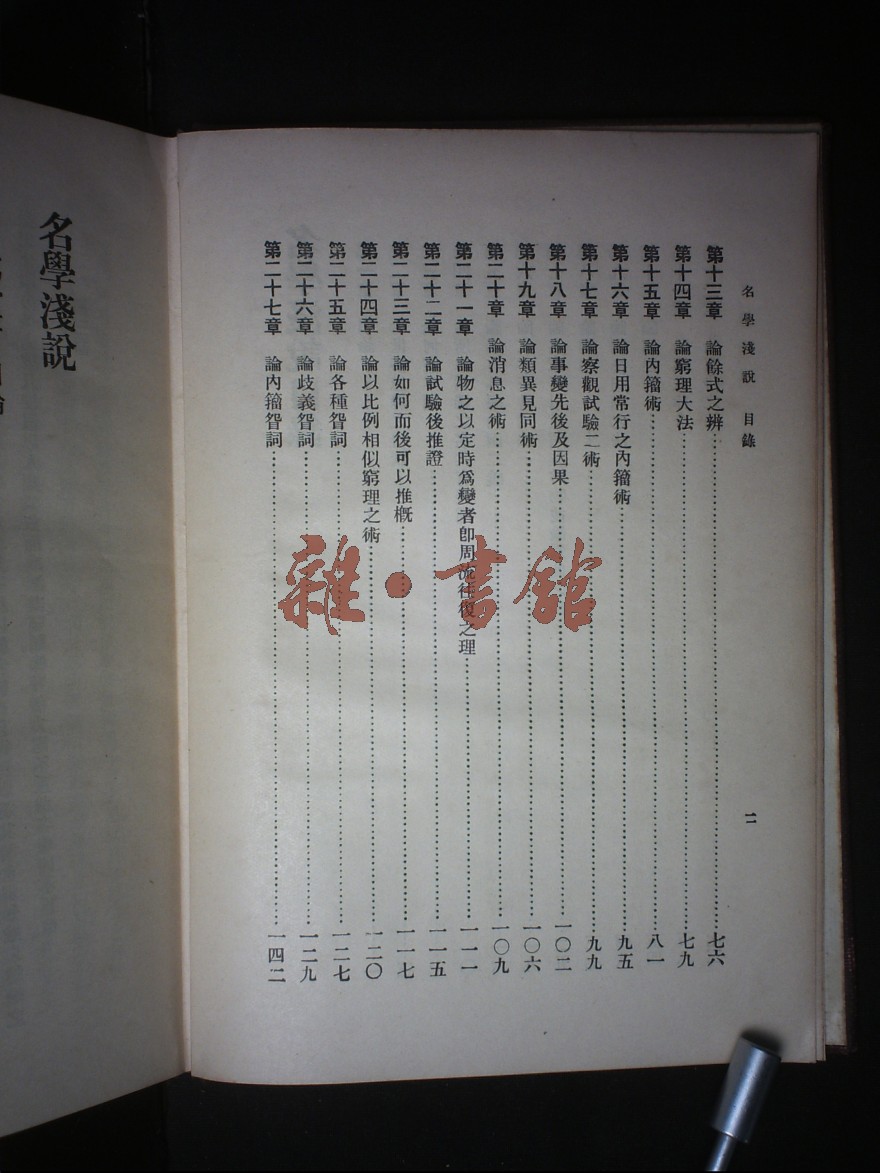 名學淺說 目錄
二
第十三章 論餘式之辨……七六
第十四章 論窮理大法……七九
第十五章 論內籀術……八一
第十六章 論日用常行之內籀術……九五
第十七章 論察觀試驗二術……九九
第十八章 論事變先後及因果……一〇二
第十九章 論類異見同術……一〇六
第二十章 論消息之術……一〇九
第二十一章 論物之以定時爲變者卽周流往復之理……一一一
第二十二章 論試驗後推證……一一五
第二十三章 論如何而後可以推槪……一一七
第二十四章 論以比例相似窮理之術……一二〇
第二十五章 論各種眢詞……一二七
第二十六章 論歧義眢詞……一二九
第二十七章 論內籀眢詞……一四二
名學淺說
雜·書館